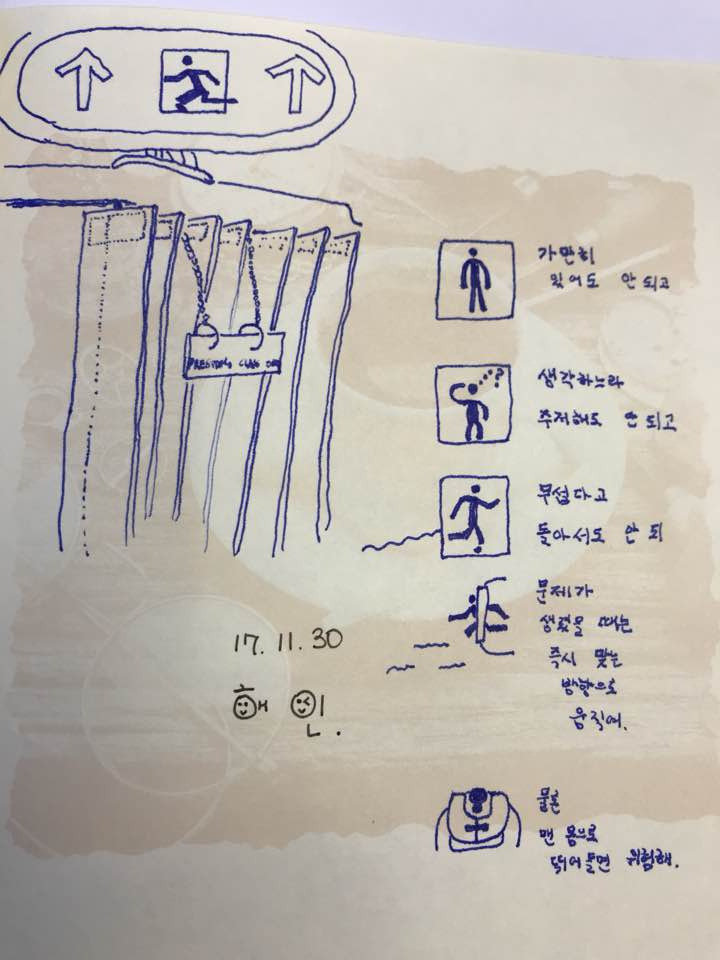 가만히
있어도 안 되고
?
생각하느라
주저해도 안 되고
무섭다고
돌아서도 안 되
문제가
생겼을 때는
즉시 맞는
방향으로
움직여.
17. 11. 30
해인.
물론
맨 몸으로
뛰어들면 위험해.